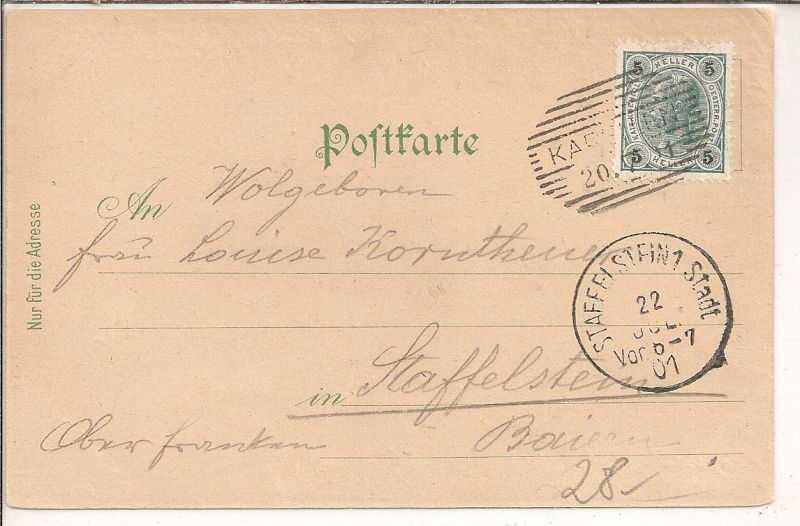 5 HELLER 5
OESTERR. POST
5 HELLER 5
20.
Postkarte
Nur für die Adresse
An Wolgeboren
frau Louise Korntheuer
STAFFELSTEIN 1 Stadt
22
JUL.
Vor. 6-7
01
in Staffelstein
Ober franken Baiern
28